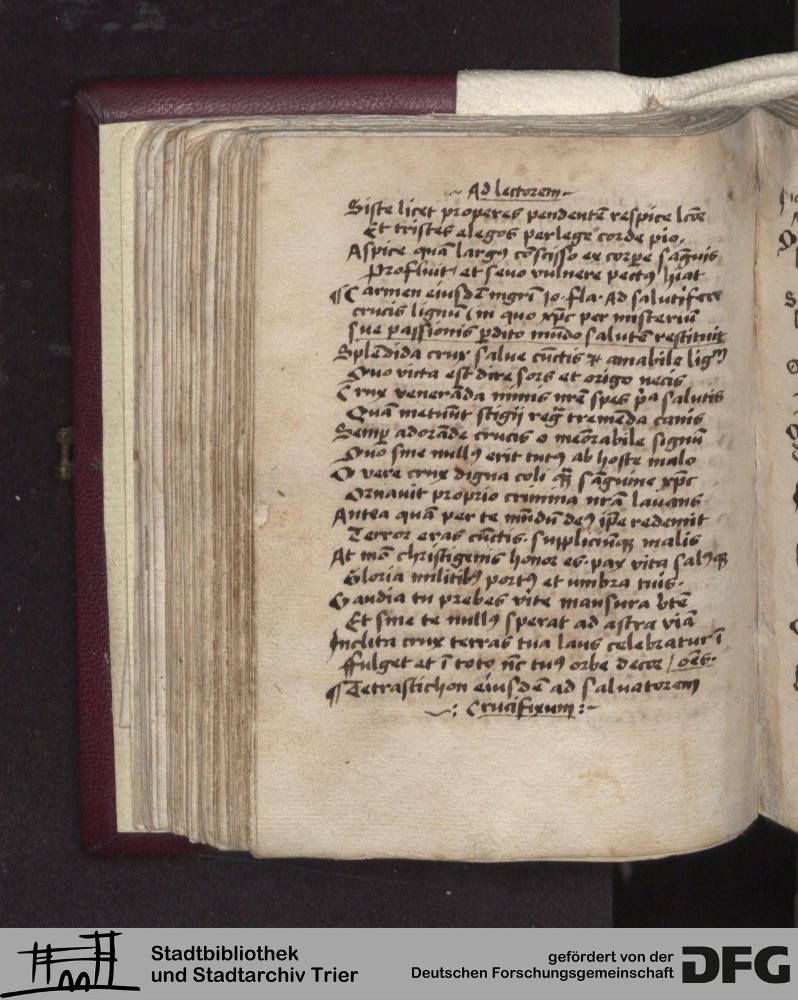 ~ Ad lectorem ~
Siste licet properes pendentē respice lcōe
Et tristes elegos perlege corde pio.
Aspice quā largꝰ cōscisso ex corpe sāguis
Profluit et seuo vulnere pectꝰ hiat
¶ Carmen eiusdē mgrī Jo. fla. Ad salutifere
crucis lignū in quo xpc per misteriū
sue passionis pdito mūdo salutē restituit
Splēdida crux salue cūctis amabile ligm
Quo victa est dire sors et origo necis
Crux venerāda nimis nrē spes pa salutis
Quā metuūt stigij regā tremēda canis
Semp adorāde crucis o meōrabile signū
Quo sine nullꝰ erit tutꝰ ab hoste malo
O vere crux digna coli quā sāguine xpc
Ornauit proprio crimina nrā lauans
Antea quā per te mūdū deꝰ ipe redemit
Terror eras cūctis. suppliciūqꝫ malis
At mō christigenis honor es. pax vita salꝰqꝫ
Gloria militibꝰ portꝰ et umbra tuis.
Gaudia tu prebes vite mansura bte
Et sine te nullꝰ sperat ad astra viā
Inclita crux terras tua laus celebratur ī
Fulget et ī toto nc tuꝰ orbe decor / oēs.
¶ Tetrastichon eiusdē ad saluatorem
~: Crucifixum :~
Stadtbibliothek
und Stadtarchiv Trier
gefördert von der
Deutschen Forschungsgemeinschaft
DFG